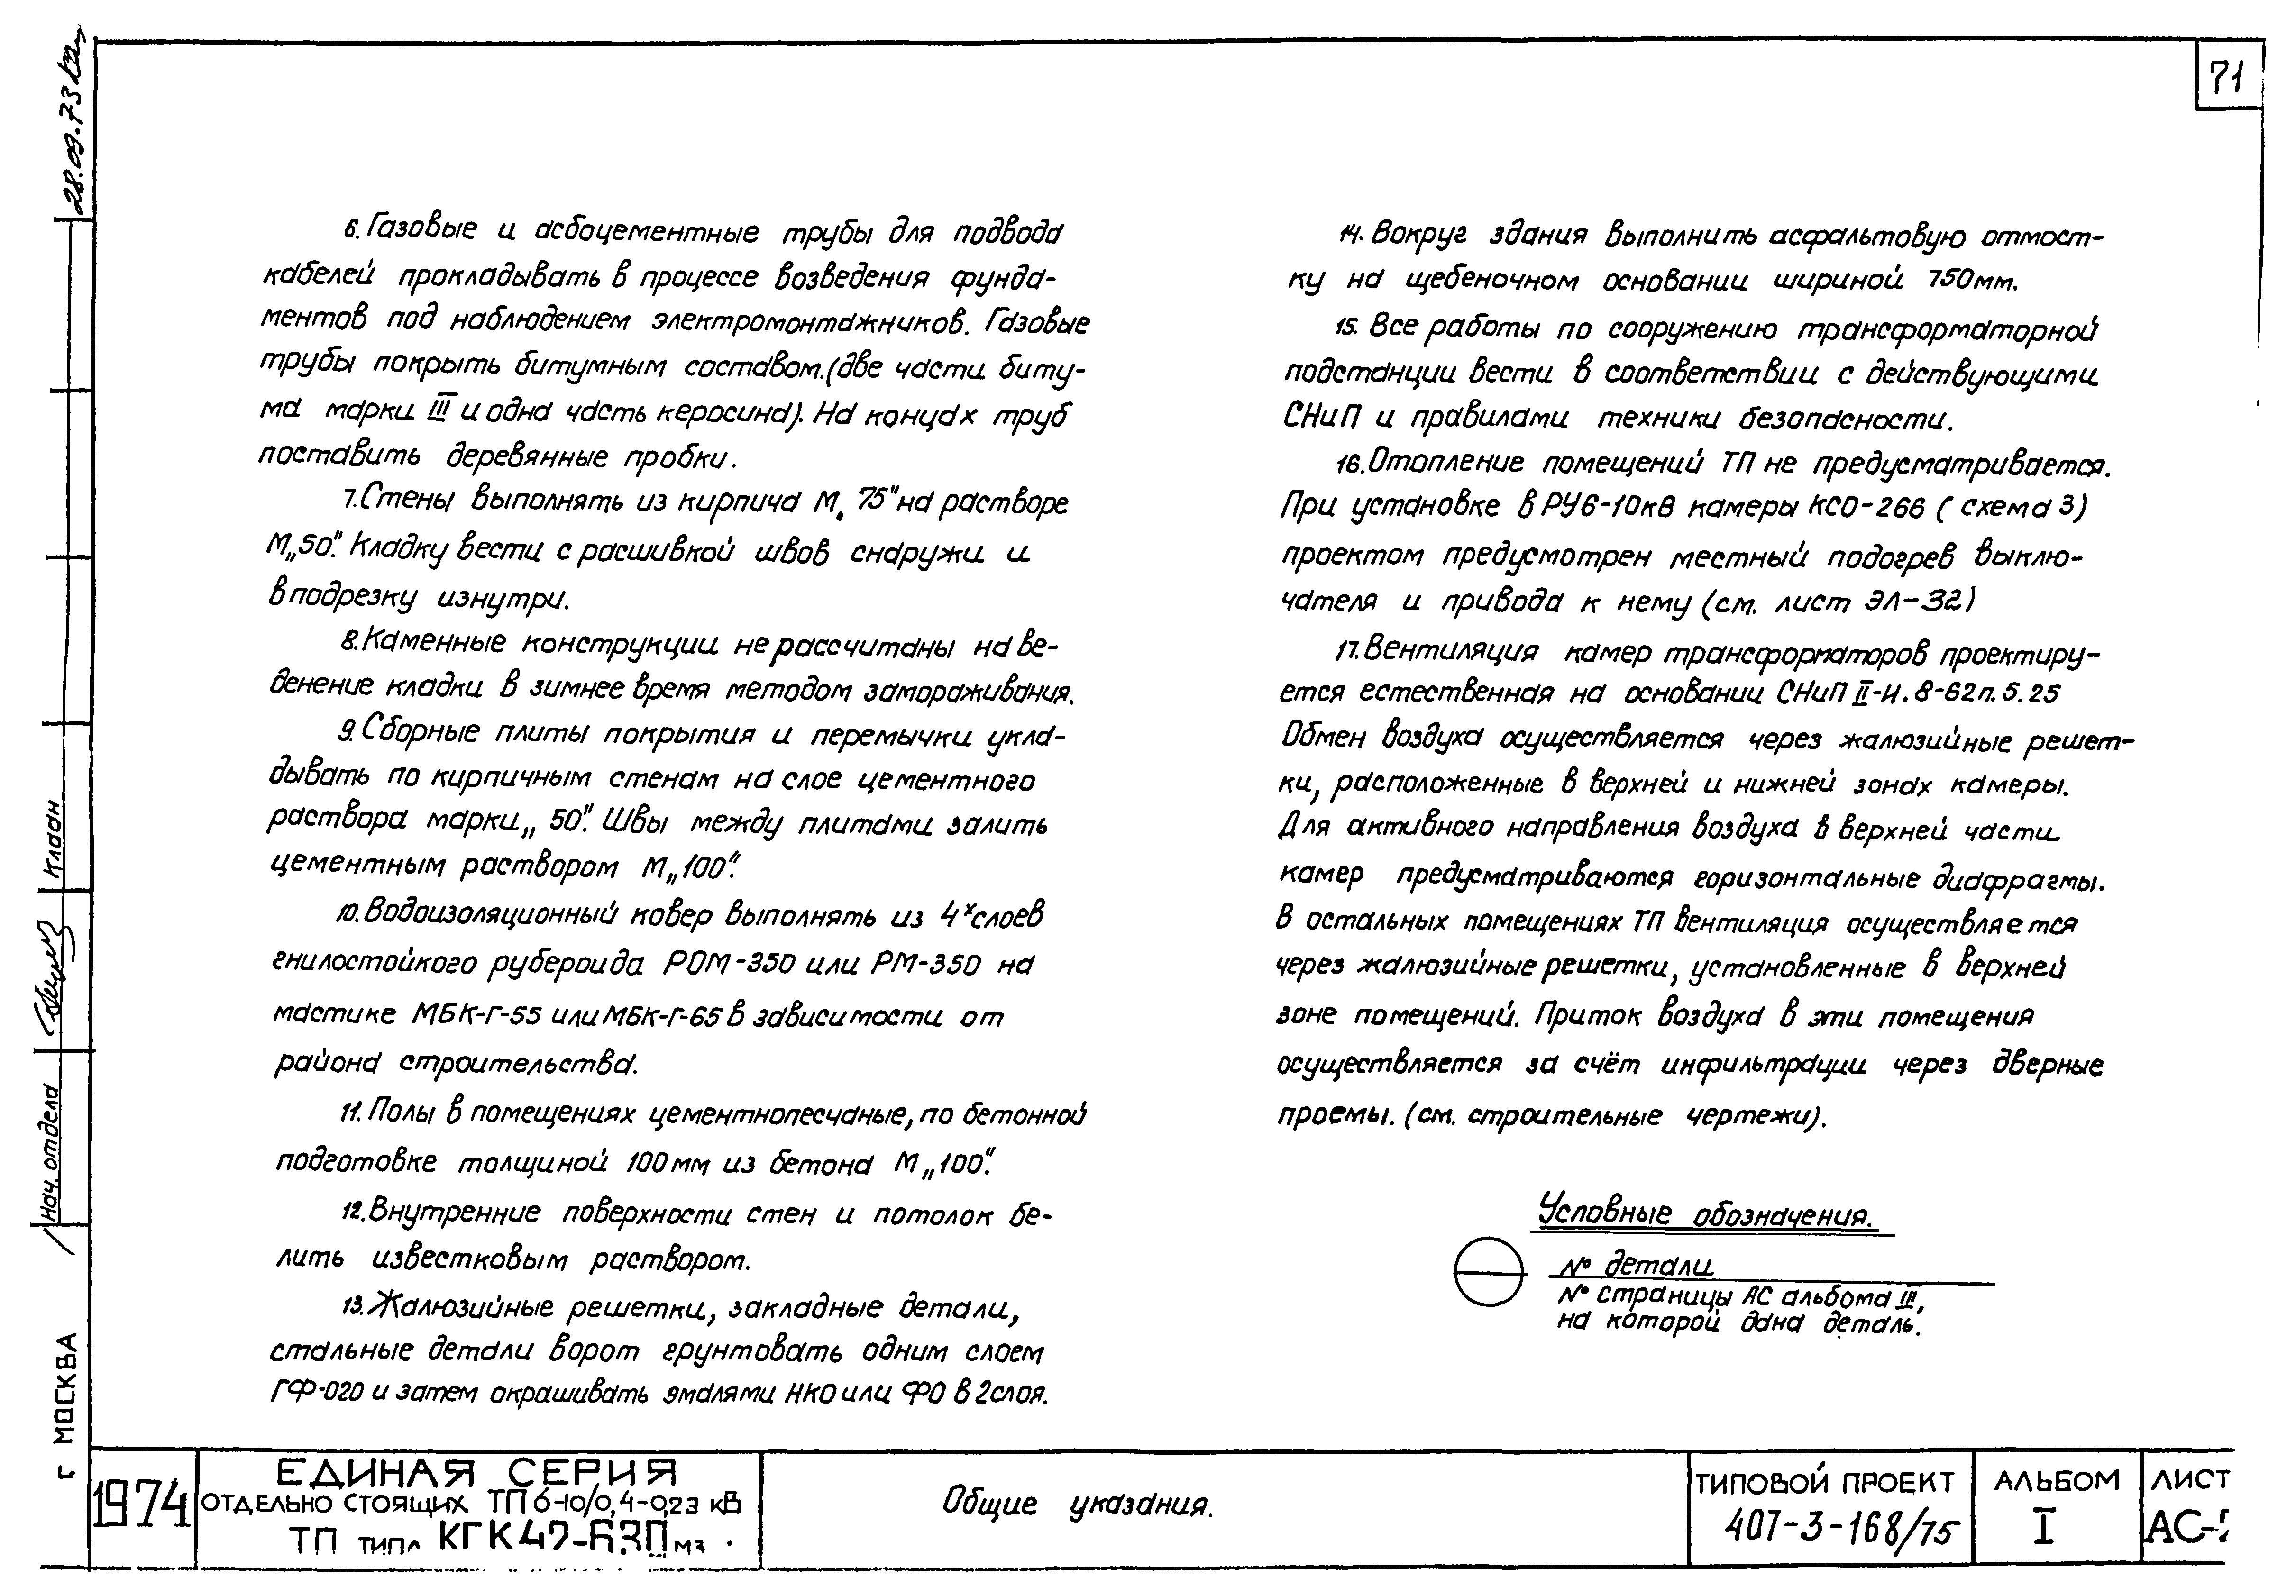 71
6. Газовые и асбоцементные трубы для подвода
кабелей прокладывать в процессе возведения фунда-
ментов под наблюдением электромонтажников. Газовые
трубы покрыть битумным составом.(две части биту-
ма марки III и одна часть керосина). На концах труб
поставить деревянные пробки.
7. Стены выполнять из кирпича М„75" на растворе
М„50". Кладку вести с расшивкой швов снаружи и
в подрезку изнутри.
8. Каменные конструкции не рассчитаны на ве-
денение кладки в зимнее время методом замораживания.
9. Сборные плиты покрытия и перемычки укла-
дывать по кирпичным стенам на слое цементного
раствора марки „50". Швы между плитами залить
цементным раствором М„100".
10. Водоизоляционный ковер выполнять из 4х слоев
гнилостойкого рубероида РОМ-350 или РМ-350 на
мастике МБК-Г-55 или МБК-Г-65 в зависимости от
района строительства.
11. Полы в помещениях цементнопесчаные, по бетонной
подготовке толщиной 100мм из бетона М„100".
12. Внутренние поверхности стен и потолок бе-
лить известковым раствором.
13. Жалюзийные решетки, закладные детали,
стальные детали ворот грунтовать одним слоем
ГФ-020 и затем окрашивать эмалями НКО или ФО в 2 слоя.
14. Вокруг здания выполнить асфальтовую отмост-
ку на щебеночном основании шириной 750мм.
15. Все работы по сооружению трансформаторной
подстанции вести в соответствии с действующими
СНиП и правилами техники безопасности.
16. Отопление помещений ТП не предусматривается.
При установке в РУ6-10кВ камеры КСО-266 (схема 3)
проектом предусмотрен местный подогрев выклю-
чателя и привода к нему (см. лист ЭЛ-32)
17. Вентиляция камер трансформаторов проектиру-
ется естественная на основании СНиП II-И.8-62п.5.25
Обмен воздуха осуществляется через жалюзийные решет-
ки, расположенные в верхней и нижней зонах камеры.
Для активного направления воздуха в верхней части
камер предусматриваются горизонтальные диафрагмы.
В остальных помещениях ТП вентиляция осуществляется
через жалюзийные решетки, установленные в верхней
зоне помещений. Приток воздуха в эти помещения
осуществляется за счёт инфильтрации через дверные
проемы. (см. строительные чертежи).
Условные обозначения.
№ детали
№ страницы АС альбома III,
на которой дана деталь.
28.09.73
Клаан
Нач. отдела
г МОСКВА
1974
ЕДИНАЯ СЕРИЯ
ОТДЕЛЬНО СТОЯЩИХ ТП 6-10/0,4-0,23 кВ
ТП типа КГК42-630 м3
Общие указания.
ТИПОВОЙ ПРОЕКТ
407-3-168/75
АЛЬБОМ
I
ЛИСТ
АС-